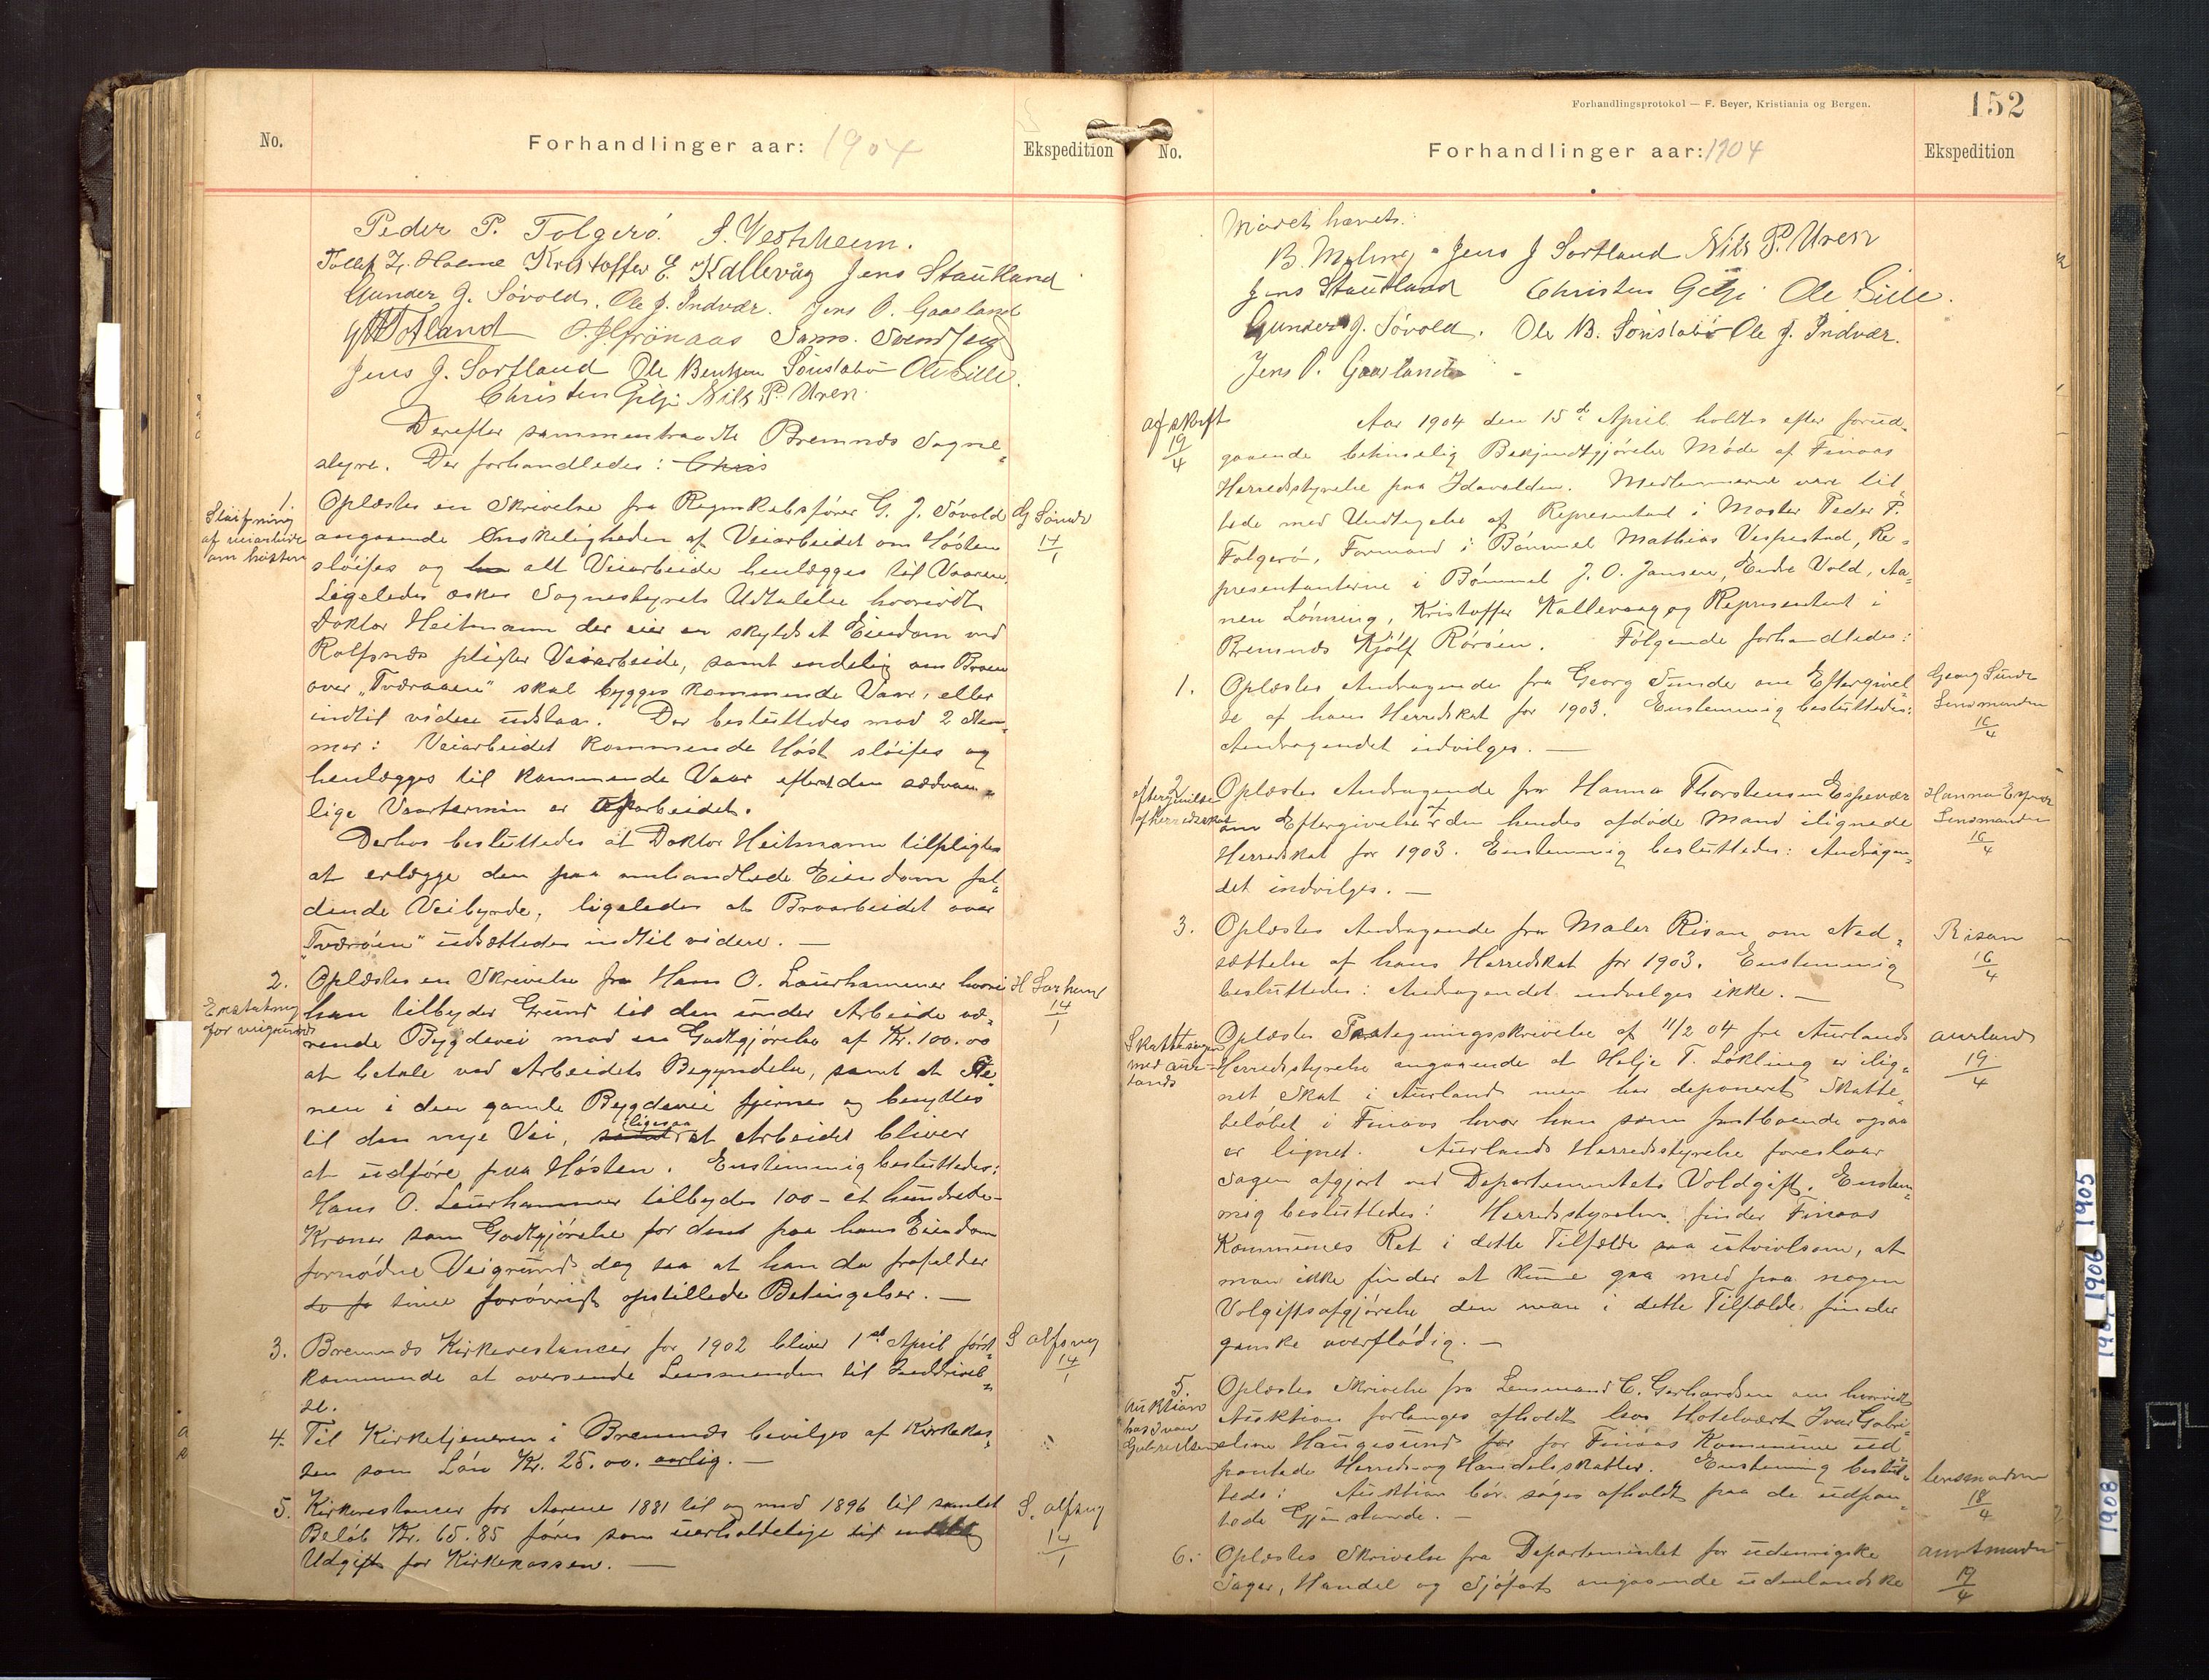 No.
Forhandlinger aar: 1904
Ekspedition
Peder P. Folgerö. S. Vestvheim.
Tollef Z. Holme Kristoffer E. Kallevåg Jens Stautland
Gunder J. Sövold. Ole J. Indvær. Jens O. Gaasland
Totland O. J. Grönaas Sams. Svendsen
Jens J. Sortland Ole Bentsen Sönstabö Ole Lille.
Christen Gilje Nils P. Uren
Derefter sammentraadte Bremnæs Sogne-
styre. Der forhandledes: Chris
1. Oplæstes en Skrivelse fra Regnskabsfører G. J. Sövold
Sløifning
af veiarbeide
om høsten
G Sönde
14/1
angaaende Ønskeligheden af Veiarbeidet om Høsten
sløifes og alt Veiarbeide henlægges til Vaaren.
Ligeledes æskes Sognestyrets Udtalelse hvorvidt
Doktor Heitmann der eier en skyldsat Eiendom ved
Rolfsnæs pligter Veiarbeide, samt endelig om Broen
over "Tværaaen" skal bygges kommende Vaar, eller
indtil videre udstaa. Der besluttedes mod 2 Stem-
mer: Veiarbeidet kommende Høst sløifes og
henlægges til kommende Vaar efterat den sædvan-
lige Vaartermin er afarbeidet.
Derhos besluttedes at Doktor Heitmann tilpligtes
at erlægge den paa omhandlede Eiendom fal-
dende Veibyrde, ligeledes at Broarbeidet over
"Tværöen" udsættedes indtil videre. —
2. Oplæstes en Skrivelse fra Hans O. Laurhammer hvori
Erstatning
for veigrund
14/1
han tilbyder Grund til den under Arbeide væ-
rende Bygdevei mod en Godtgjørelse af Kr. 100.00
at betale ved Arbeidets Begyndelse, samt at Ste-
nen i den gamle Bygdevei fjernes og benyttes
til den nye Vei, samt ligesaa at Arbeidet bliver
at udføre paa Høsten. Enstemmig besluttedes:
Hans O. Laurhammer tilbydes 100 - et hundrede -
Kroner som Godtgjørelse for den paa hans Eiendom
fornødne Veigrund dog saa at han da frafalder
sine forøvrigt opstillede Betingelser. —
3. Bremnæs Kirkerestancer for 1902 bliver 1st April först-
S alfsng
14/1
kommende at oversende Lensmanden til Inddrivel-
se.
4. Til Kirketjeneren i Bremnæs bevilges af Kirkekas-
sen som Lön Kr. 25.00. aarlig. —
5. Kirkerestancer for Aarene 1881 til og med 1896 til samlet
S. alfsng
14/1
Beløb Kr. 65.85 føres som uerholdelige til
Udgift for Kirkekassen. —
Forhandlingsprotokol — F. Beyer, Kristiania og Bergen.
152
No.
Forhandlinger aar: 1904
Ekspedition
Mödet hævet.
B. Meling Jens J Sortland Nils P. Uren
Jens Stautland Christen Gilje Ole Lille.
Gunder J. Sövold. Ole B. Sönstabö Ole J. Indvær.
Jens O. Gaasland
afskrift
19/4
Aar 1904 den 15de April holdtes efter forud-
gaaende betimelig Bekjendtgjørelse Møde af Finaas
Herredsstyrelse paa Idavolden. Medlemmerne vare til-
stede med Undtagelse af Representant i Moster Peder P.
Folgerö, Formand i Bömmel Mathias Vespestad, Re-
presentanterne i Bömmel J. O. Jansen, Endre Vold, Aa-
nen Lönning, Kristoffer Kallevaag og Representant i
Bremnæs Kjölf Röröen. Følgende forhandledes:
1. Oplæstes Andragende fra Georg Sunde om Eftergivel-
Georg Sunde
Lensmanden
16/4
se af hans Herredskat for 1903. Enstemmig besluttedes:
Andragendet indvilges. —
2. Oplæstes Andragende fra Hanna Thorstensen Espevær
eftergivelse
af herredsskat
Hanna Espevær
Lensmanden
16/4
om Eftergivelse af den hendes afdøde Mand ilignede
Herredskat for 1903. Enstemmig besluttedes: Andragen-
det indvilges. —
3. Oplæstes Andragende fra Maler Risan om Ned-
Risan
16/4
sættelse af hans Herredskat for 1903. Enstemmig
besluttedes: Andragendet indvilges ikke. —
Skattesagen
med Aur-
lands
Oplæstes Paategningsskrivelse af 11/2 04 fra Aurlands
Aurland
19/4
Herredsstyrelse angaaende at Helje T. Løkling er ilig-
net Skat i Aurland men har deponeret Skatte-
beløbet i Finaas hvor han som fastboende ogsaa
er lignet. Aurlands Herredsstyrelse foreslaar
Sagen afgjort ved Departementets Voldgift. Enstem-
mig besluttedes: Herredsstyrelsen finder Finaas
Kommunes Ret i dette Tilfælde saa utvivlsom, at
man ikke finder at kunne gaa med paa nogen
Volgiftsafgjørelse den man i dette Tilfælde finder
ganske overflødig. —
5. Oplæstes Skrivelse fra Lensmand C. Gerhardsen om hvorvidt
Auktion
hos Ivar
Gabrielsen
Auktion forlanges afholdt hos Hotelvært Ivar Gabri-
elsen Haugesund for Finaas Kommune ud-
pantede Herreds- og Handelsskatter. Enstemmig beslut-
lensmanden
18/4
tedes: Auktion bør søges afholdt paa de udpan-
tede Gjenstande. —
6. Oplæstes Skrivelse fra Departementet for udenrigske
amtmanden
19/4
Sager, Handel og Sjøfart angaaende udenlandske
1905
1906
1908